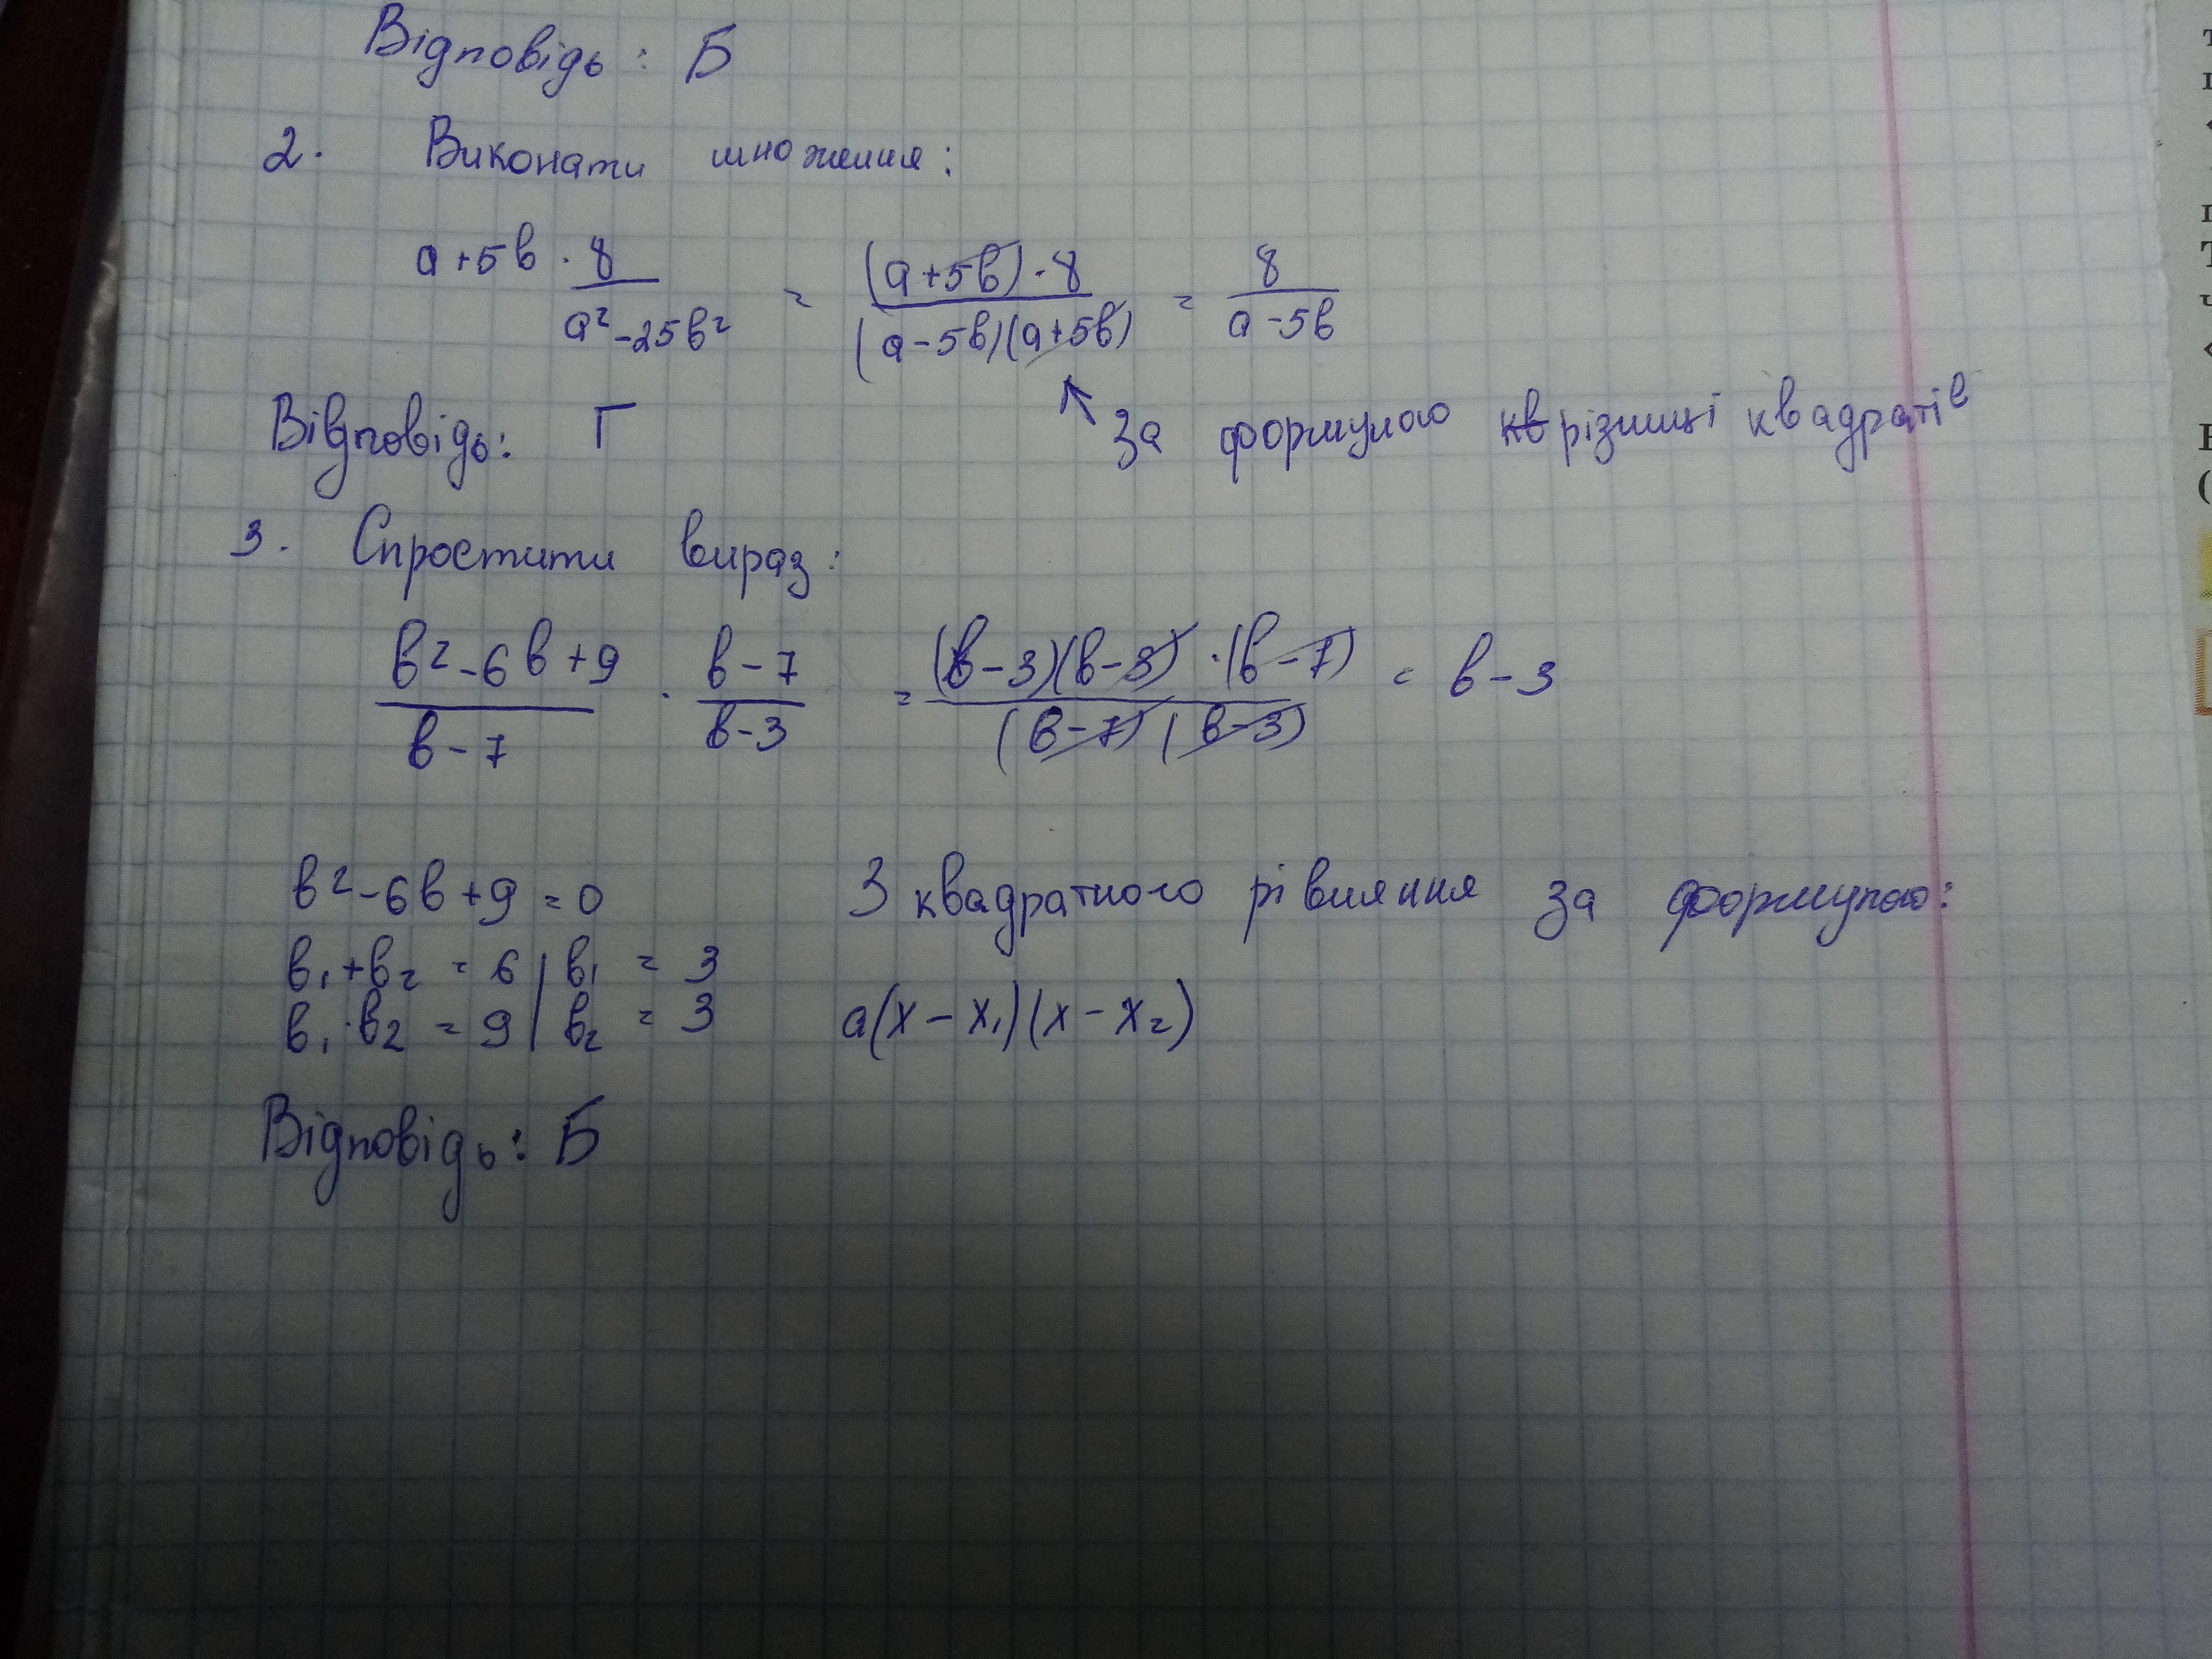 Відповідь: Б
2. Виконати множення:
a+5b · 8/(a²-25b²) = (a+5b)·8/((a-5b)(a+5b)) = 8/(a-5b)
Відповідь: Г
За формулою кв різниці квадратів
3. Спростити вираз:
(b²-6b+9)/(b-7) · (b-7)/(b-3) = (b-3)(b-3)·(b-7)/((b-7)(b-3)) = b-3
b²-6b+9=0
b₁+b₂ = 6 | b₁ = 3
b₁·b₂ = 9 | b₂ = 3
З квадратного рівняння за формулою:
a(x-x₁)(x-x₂)
Відповідь: Б